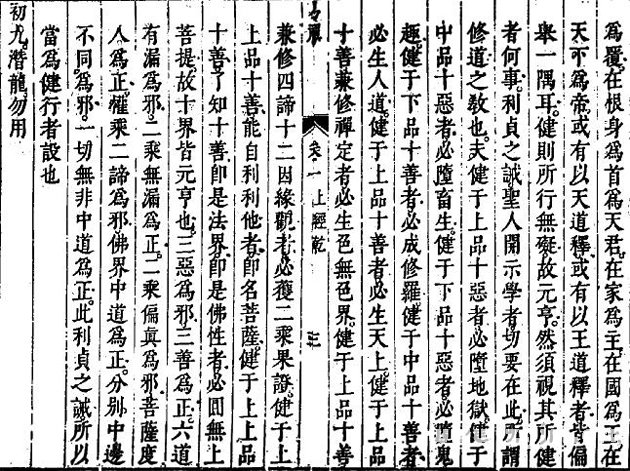 為覆。在恨身為首為天君。在家為主。在國為王在
天下為帝或有以天道釋。或有以王道釋者皆偏
舉一隅耳。健則所行無礙。故元亨。然須視其所健
者何事。利貞之誡聖人開示學者切要在此。所謂
修道之教也。夫健于上品十惡者必墮地獄健于
中品十惡者。必墮畜生。健于下品十惡者。必墮鬼
趣。健于下品十善者。必成修羅健于中品十善者
必生人道。健于上品十善者必生天上。健于上品
十善兼修禪定者必生色無色界。健于上品十善
卷一 上經乾 三
兼修四諦十二因緣觀者。必獲二乘果證。健于上
上品十善。能自利利他者。即名菩薩。健于上上品
十善了知十善即是法界。即是佛性者。必圓無上
菩提故十界皆元亨也。三惡為邪三善為正。六道
有漏為邪。二乘無漏為正。二乘偏真為邪。菩薩度
人為正。權乘二諦為邪。佛界中道為正。分別中邊
不同為邪。一切無非中道為正。此利貞之誡所以
當為健行者設也
初九。潛龍勿用